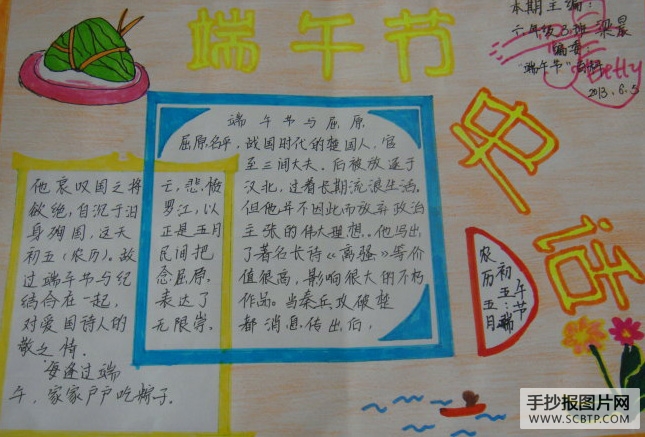 端午节
史话
本期主编:
六年级3班 梁晨
编委
"端午节"
Betty
2013.6.5
端午节与屈原
屈原名平,战国时代的楚国人,官
至三闾大夫。后被放逐于
汉北,过着长期流浪生活,
但他并不因此而放弃政治
主张的伟大理想。他写出
了著名长诗《离骚》等价
值很高,影响很大的不朽
作品。当秦兵攻破楚
都消息传出后,
他哀叹国之将亡,悲愤
欲绝,自沉于汨罗江,以
身殉国,这天正是五月
初五(农历)。故民间把
过端午节与纪念屈原,
结合在一起,表达了
对爱国诗人的无限崇,
敬之情.
每逢过端
午,家家户户吃粽子.
农历五月
初五:端
午节
手抄报图片网
WWW.SCBTP.COM